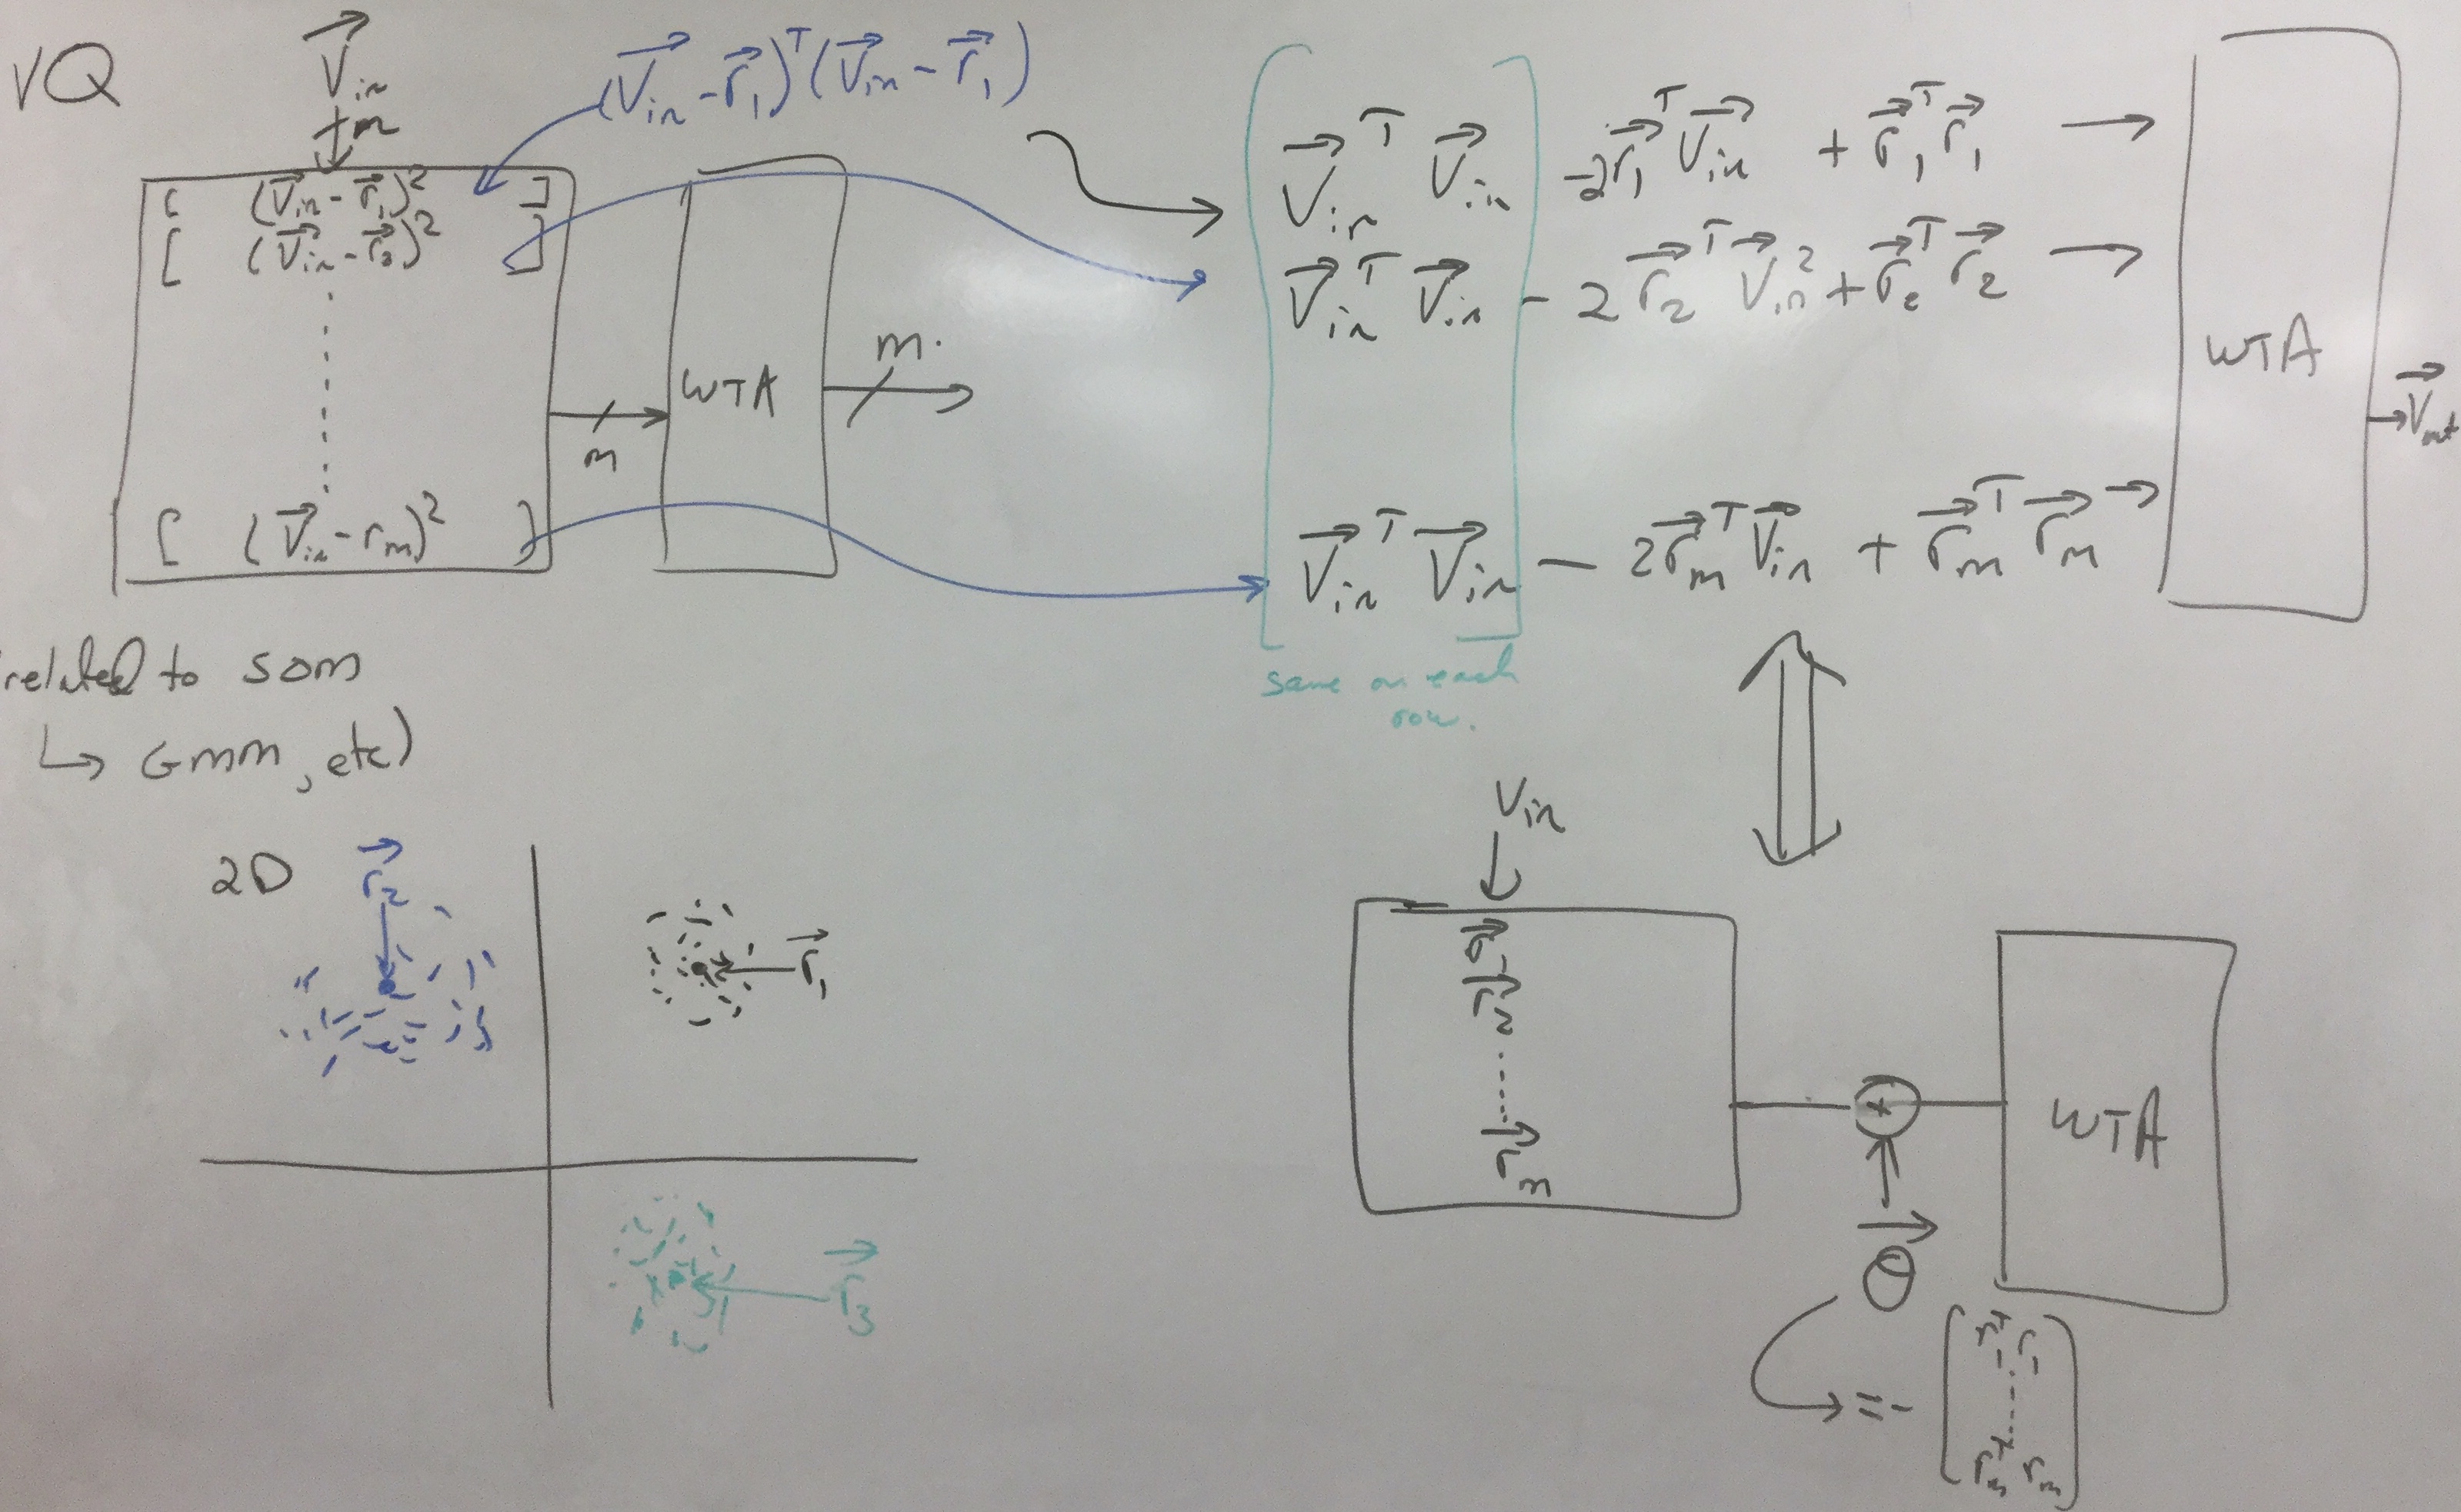 VQ
V⃗in
m
(V⃗in - r⃗1)ᵀ(V⃗in - r⃗1)
[ (V⃗in - r⃗1)² ]
[ (V⃗in - r⃗2)² ]
[ (V⃗in - rm)² ]
m
WTA
m.
V⃗inᵀ V⃗in - 2r⃗1ᵀ V⃗in + r⃗1ᵀ r⃗1 →
V⃗inᵀ V⃗in - 2 r⃗2ᵀ V⃗in² + r⃗2ᵀ r⃗2 →
V⃗inᵀ V⃗in - 2r⃗mᵀ V⃗in + r⃗mᵀ r⃗m →
WTA
V⃗out
same on each
row.
related to SOM
↳ GMM, etc)
2D
r⃗2
r⃗1
r⃗3
Vin
r⃗1
r⃗2
r⃗m
+
WTA
θ⃗
= - [ r1ᵀ r1
rmᵀ rm ]